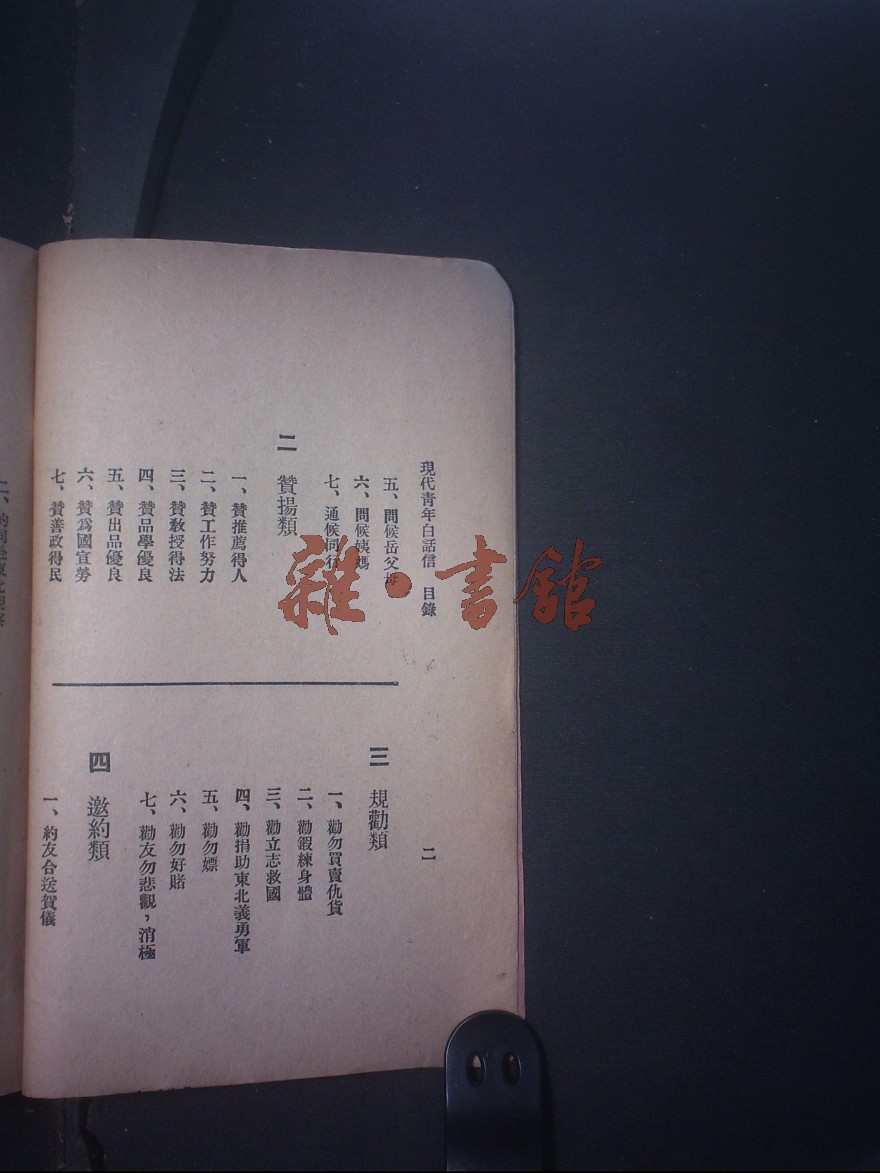 現代青年白話信 目錄
五、問候岳父母
六、問候姨媽
七、通候同行
二 贊揚類
一、贊推薦得人
二、贊工作努力
三、贊教授得法
四、贊品學優良
五、贊出品優良
六、贊爲國宣勞
七、贊善政得民
二
三 規勸類
一、勸勿買賣仇貨
二、勸鍛練身體
三、勸立志救國
四、勸捐助東北義勇軍
五、勸勿嫖
六、勸勿好賭
七、勸友勿悲觀，消極
四 邀約類
一、約友合送賀儀
雜·書館